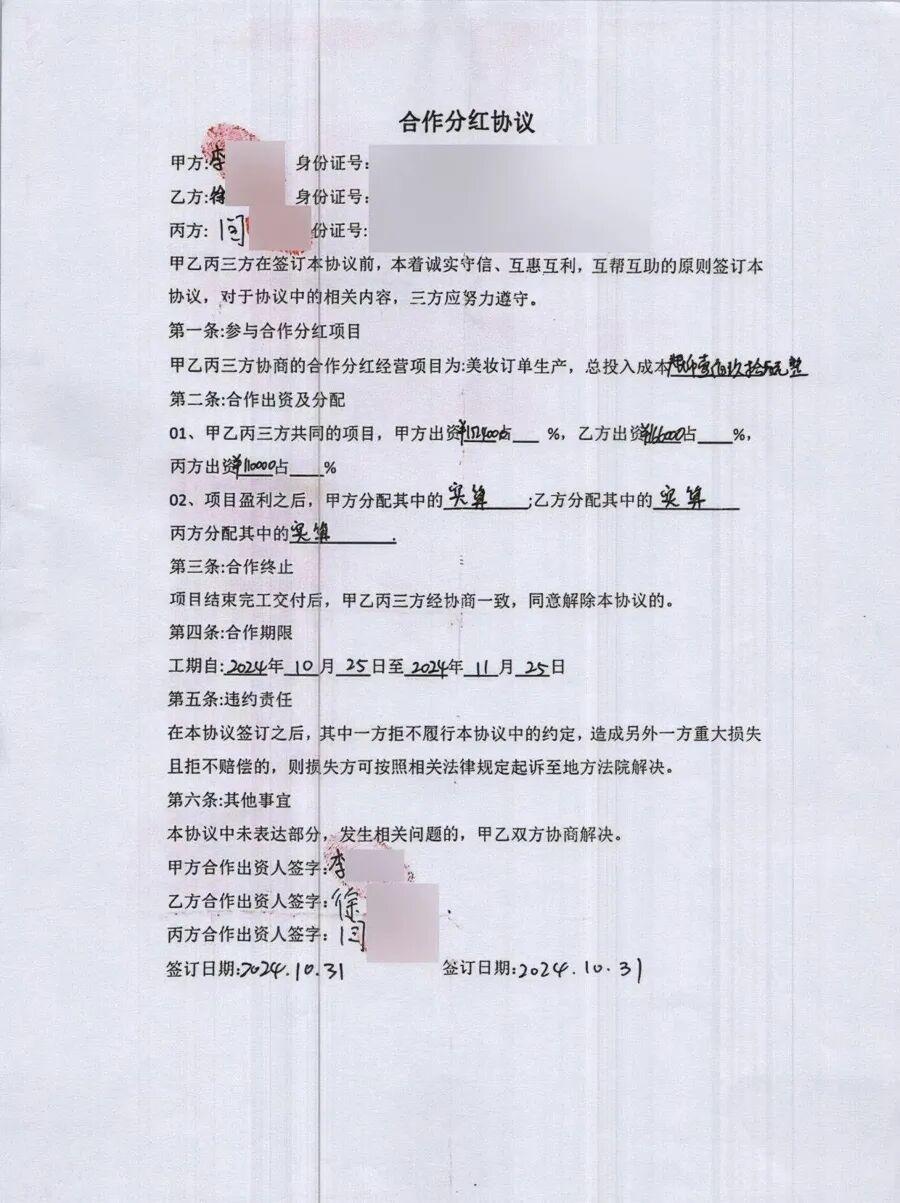 合作分红协议
甲方:李 身份证号:
乙方:徐 身份证号:
丙方: 闫 份证号:
甲乙丙三方在签订本协议前，本着诚实守信、互惠互利，互帮互助的原则签订本
协议，对于协议中的相关内容，三方应努力遵守。
第一条:参与合作分红项目
甲乙丙三方协商的合作分红经营项目为:美妆订单生产，总投入成本
第二条:合作出资及分配
01、甲乙丙三方共同的项目，甲方出资 占___ %，乙方出资¥166000占____%，
丙方出资¥110000占____%
02、项目盈利之后，甲方分配其中的 实算 ;乙方分配其中的 实算
丙方分配其中的实算 .
第三条:合作终止
项目结束完工交付后，甲乙丙三方经协商一致，同意解除本协议的。
第四条:合作期限
工期自:2024年 10 月 25 日至 2024年 11 月 25 日
第五条:违约责任
在本协议签订之后，其中一方拒不履行本协议中的约定，造成另外一方重大损失
且拒不赔偿的，则损失方可按照相关法律规定起诉至地方法院解决。
第六条:其他事宜
本协议中未表达部分，发生相关问题的，甲乙双方协商解决。
甲方合作出资人签字:李
乙方合作出资人签字:徐
丙方合作出资人签字: 闫
签订日期:2024.10.31 签订日期:2024.10.31